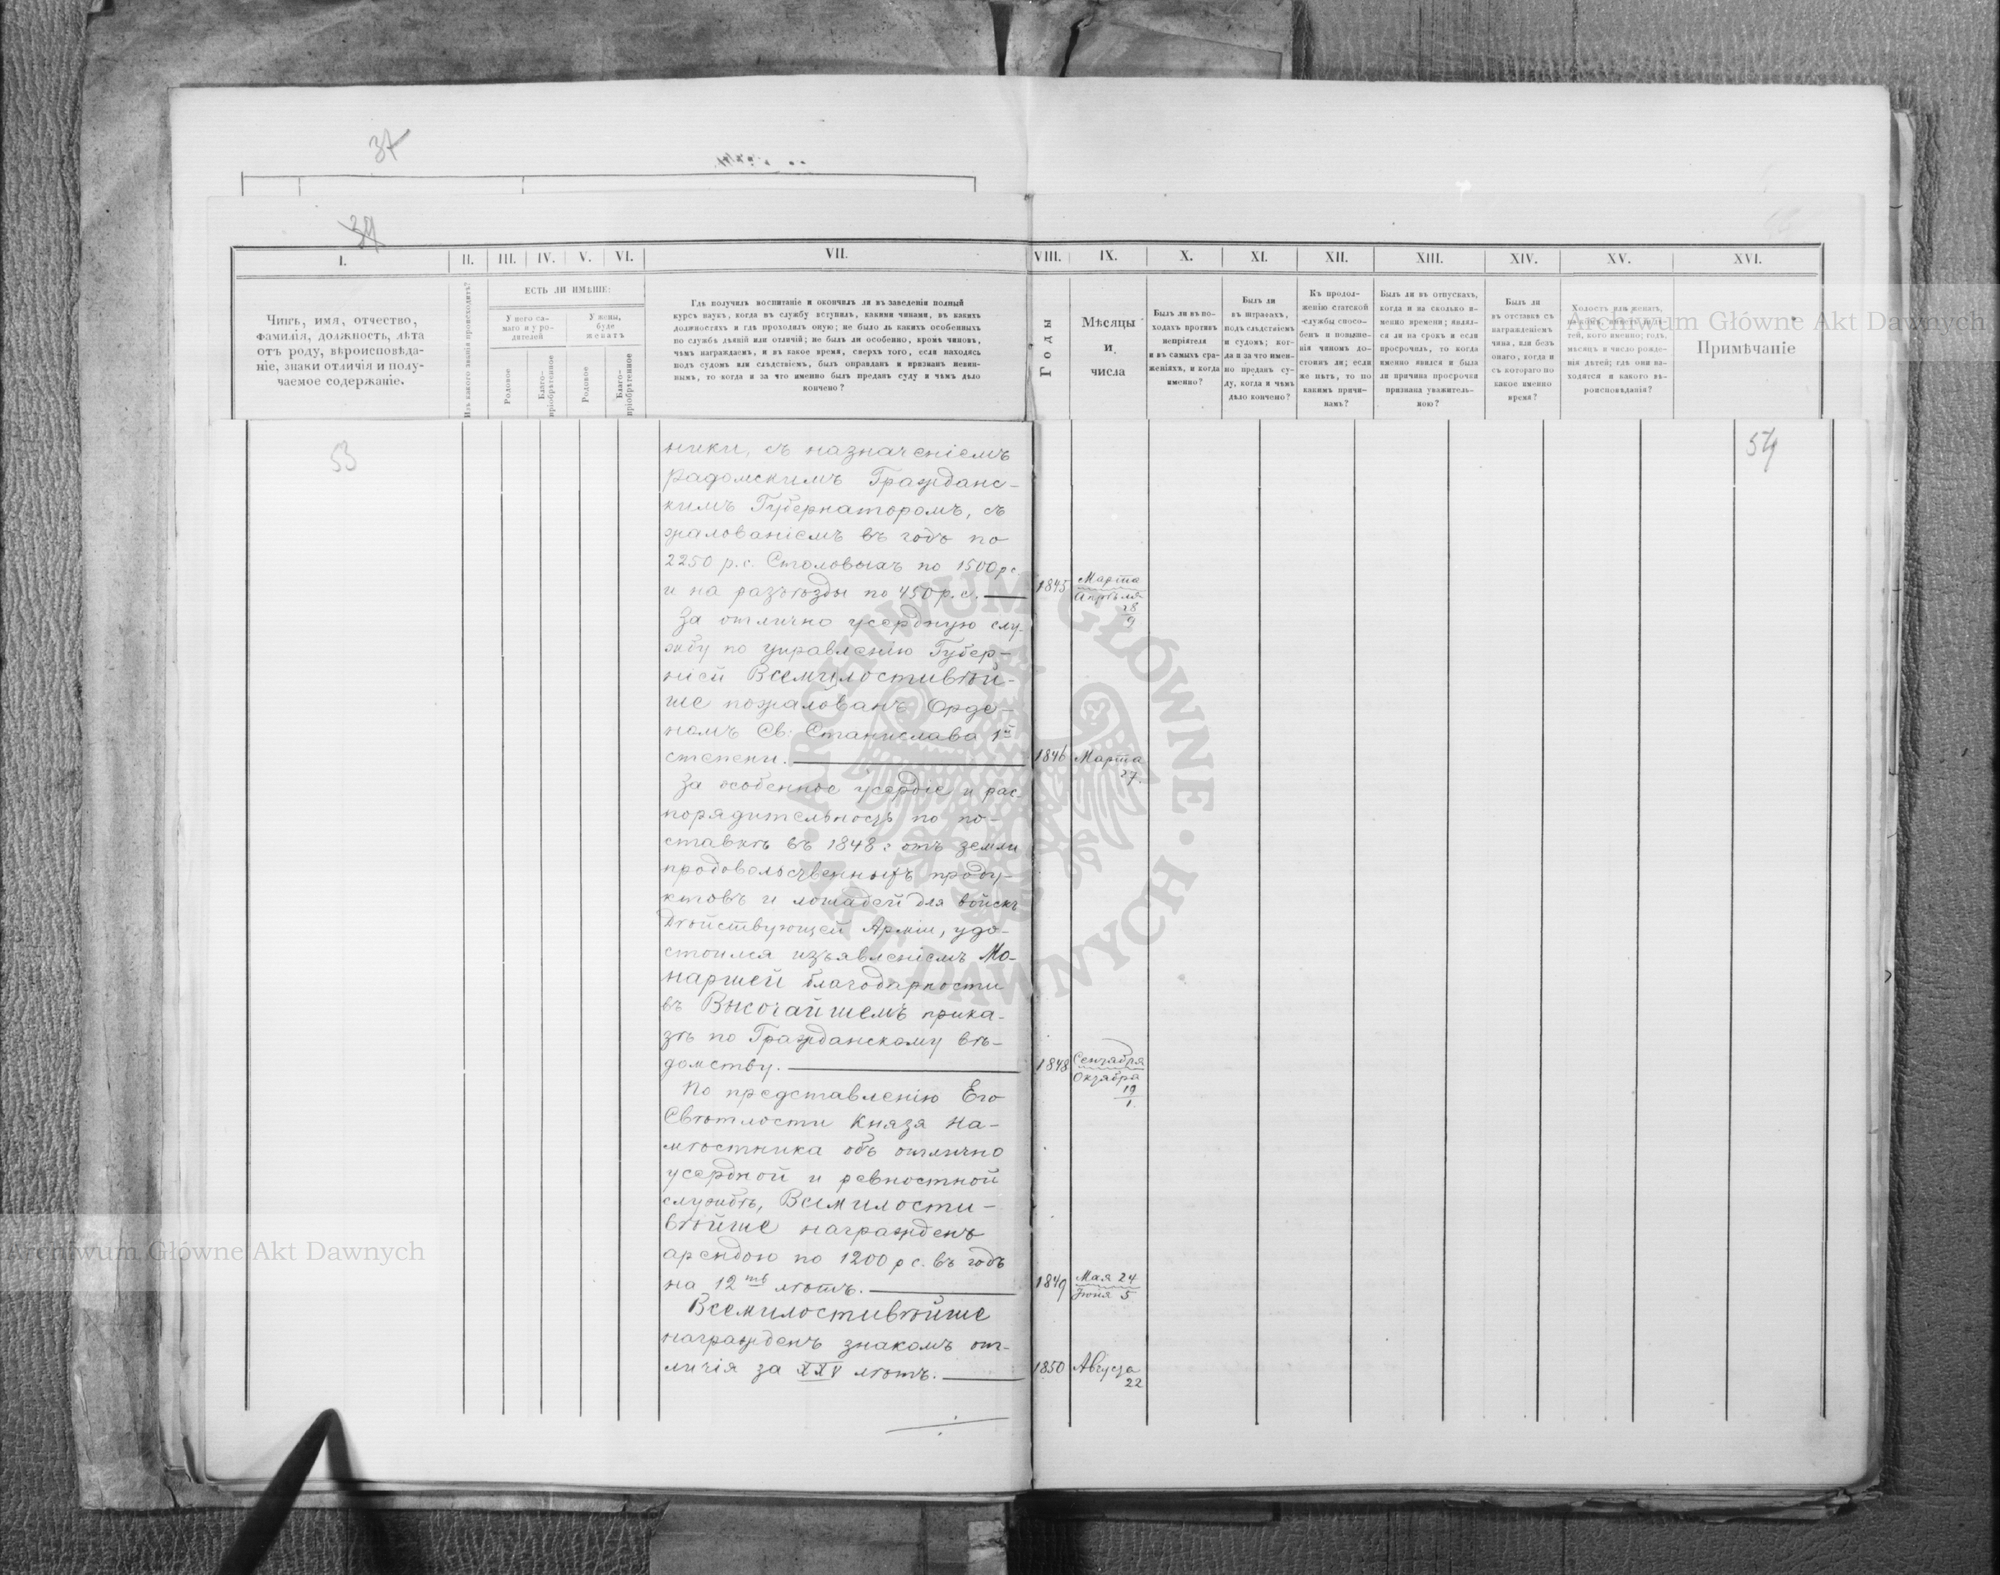 37
34
I.
II.
III.
IV.
V.
VI.
VII.
VIII.
IX.
X.
XI.
XII.
XIII.
XIV.
XV.
XVI.
Чинъ, имя, отчество,
фамилія, должность, лѣта
отъ роду, вѣроисповѣда-
ніе, знаки отличія и полу-
чаемое содержаніе.
Изъ какого званія происходитъ?
ЕСТЬ ЛИ ИМѢНІЕ:
У него са-
маго и у ро-
дителей
У жены,
буде
женатъ
Родовое
Благо-
пріобрѣтенное
Родовое
Благо-
пріобрѣтенное
Гдѣ получилъ воспитаніе и окончилъ ли въ заведеніи полный
курсъ наукъ, когда въ службу вступилъ, какими чинами, въ какихъ
должностяхъ и гдѣ проходилъ оную; не было ль какихъ особенныхъ
по службѣ дѣяній или отличій; не былъ ли особенно, кромѣ чиновъ,
чѣмъ награждаемъ, и въ какое время, сверхъ того, если находясь
подъ судомъ или слѣдствіемъ, былъ оправданъ и признанъ невин-
нымъ, то когда и за что именно былъ преданъ суду и чѣмъ дѣло
кончено?
Годы
Мѣсяцы
и
числа
Былъ ли въ по-
ходахъ противъ
непріятеля
и въ самыхъ сра-
женіяхъ, и когда
именно?
Былъ ли
въ штрафахъ,
подъ слѣдствіемъ
и судомъ; ког-
да и за что имен-
но преданъ су-
ду, когда и чѣмъ
дѣло кончено?
Къ продол-
женію статской
службы спосо-
бенъ и повыше-
нія чиномъ до-
стоинъ ли; если
же нѣтъ, то по
какимъ причи-
намъ?
Былъ ли въ отпускахъ,
когда и на сколько и-
менно времени; являл-
ся ли на срокъ и если
просрочилъ, то когда
именно явился и была
ли причина просрочки
признана уважитель-
ною?
Былъ ли
въ отставкѣ съ
награжденіемъ
чина, или безъ
онаго, когда и
съ котораго по
какое именно
время?
Холостъ или женатъ,
на комъ, имѣетъ ли дѣ-
тей, кого именно; годъ,
мѣсяцъ и число рожде-
нія дѣтей; гдѣ они на-
ходятся и какого вѣ-
роисповѣданія?
Примѣчаніе
53
54
ники, съ назначеніемъ
Радомскимъ Граждан-
скимъ Губернаторомъ, съ
жалованіемъ въ годъ по
2250 р.с. Столовыхъ по 1500 рс
и на разъѣзды по 450 р.с.
1845
Марта
Апрѣля
28
9
За отлично усердную слу-
жбу по управленію Губер-
ніей Всемилостивѣй-
ше пожалованъ Орде-
номъ Св. Станислава 1й
степени.
1846
Марта
27.
За особенное усердіе и рас-
порядительность по по-
ставкѣ въ 1848 г отъ земли
продовольственныхъ проду-
ктовъ и лошадей для войскъ
Дѣйствующей Арміи, удо-
стоился изъявленіемъ Мо-
наршей благодарности
въ Высочайшемъ прика-
зѣ по Гражданскому вѣ-
домству.
1848
Сентября
Октября
19
1.
По представленію Его
Свѣтлости Князя На-
мѣстника объ отлично
усердной и ревностной
службѣ, Всемилости-
вѣйше награжденъ
арендою по 1200 р с. въ годъ
на 12ть лѣтъ.
1849
Мая 24
Іюня 5
Всемилостивѣйше
награжденъ знакомъ от-
личія за XXV лѣтъ.
1850
Августа
22
ARCHIWUM GŁÓWNE · AKT DAWNYCH ·
Archiwum Główne Akt Dawnych
Archiwum Główne Akt Dawnych